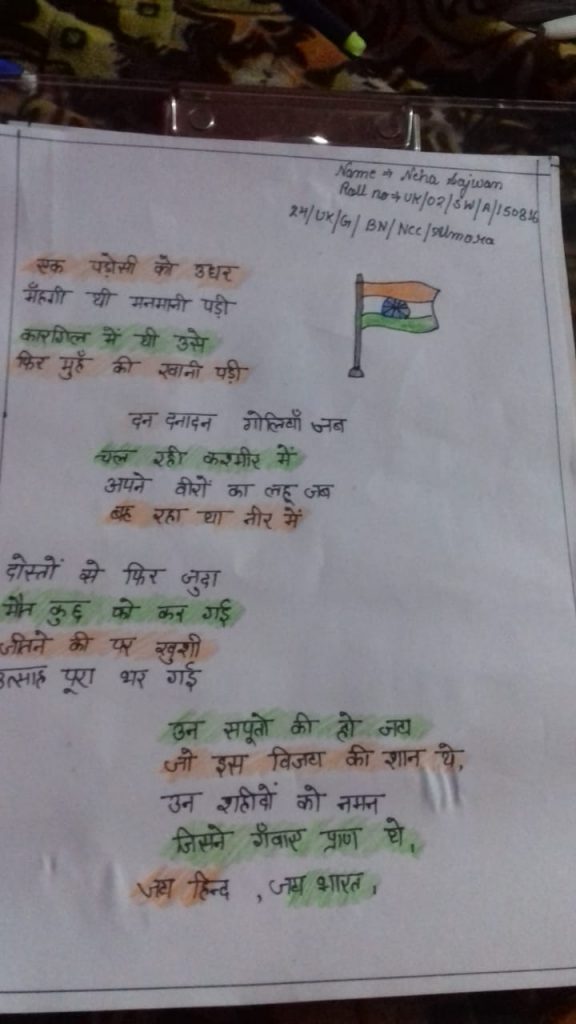 Name → Neha Bajwan
Roll no → UK/02/SW/A/150836
24/UK/G/ BN/ NCC/ Almora
एक पड़ोसी को उधर
मँहगी थी मनमानी पड़ी
कारगिल में थी उसे
फिर मुहँ की खानी पड़ी
दन दनादन गोलियाँ जब
चल रही कश्मीर में
अपने वीरों का लहू जब
बह रहा था नीर में
दोस्तों से फिर जुदा
मौत कुछ को कर गई
जीतने की पर खुशी
उत्साह पूरा भर गई
उन सपूतो की हो जय
जो इस विजय की शान थे,
उन शहीदों को नमन
जिसने गँवाए प्राण थे,
जय हिन्द , जय भारत,